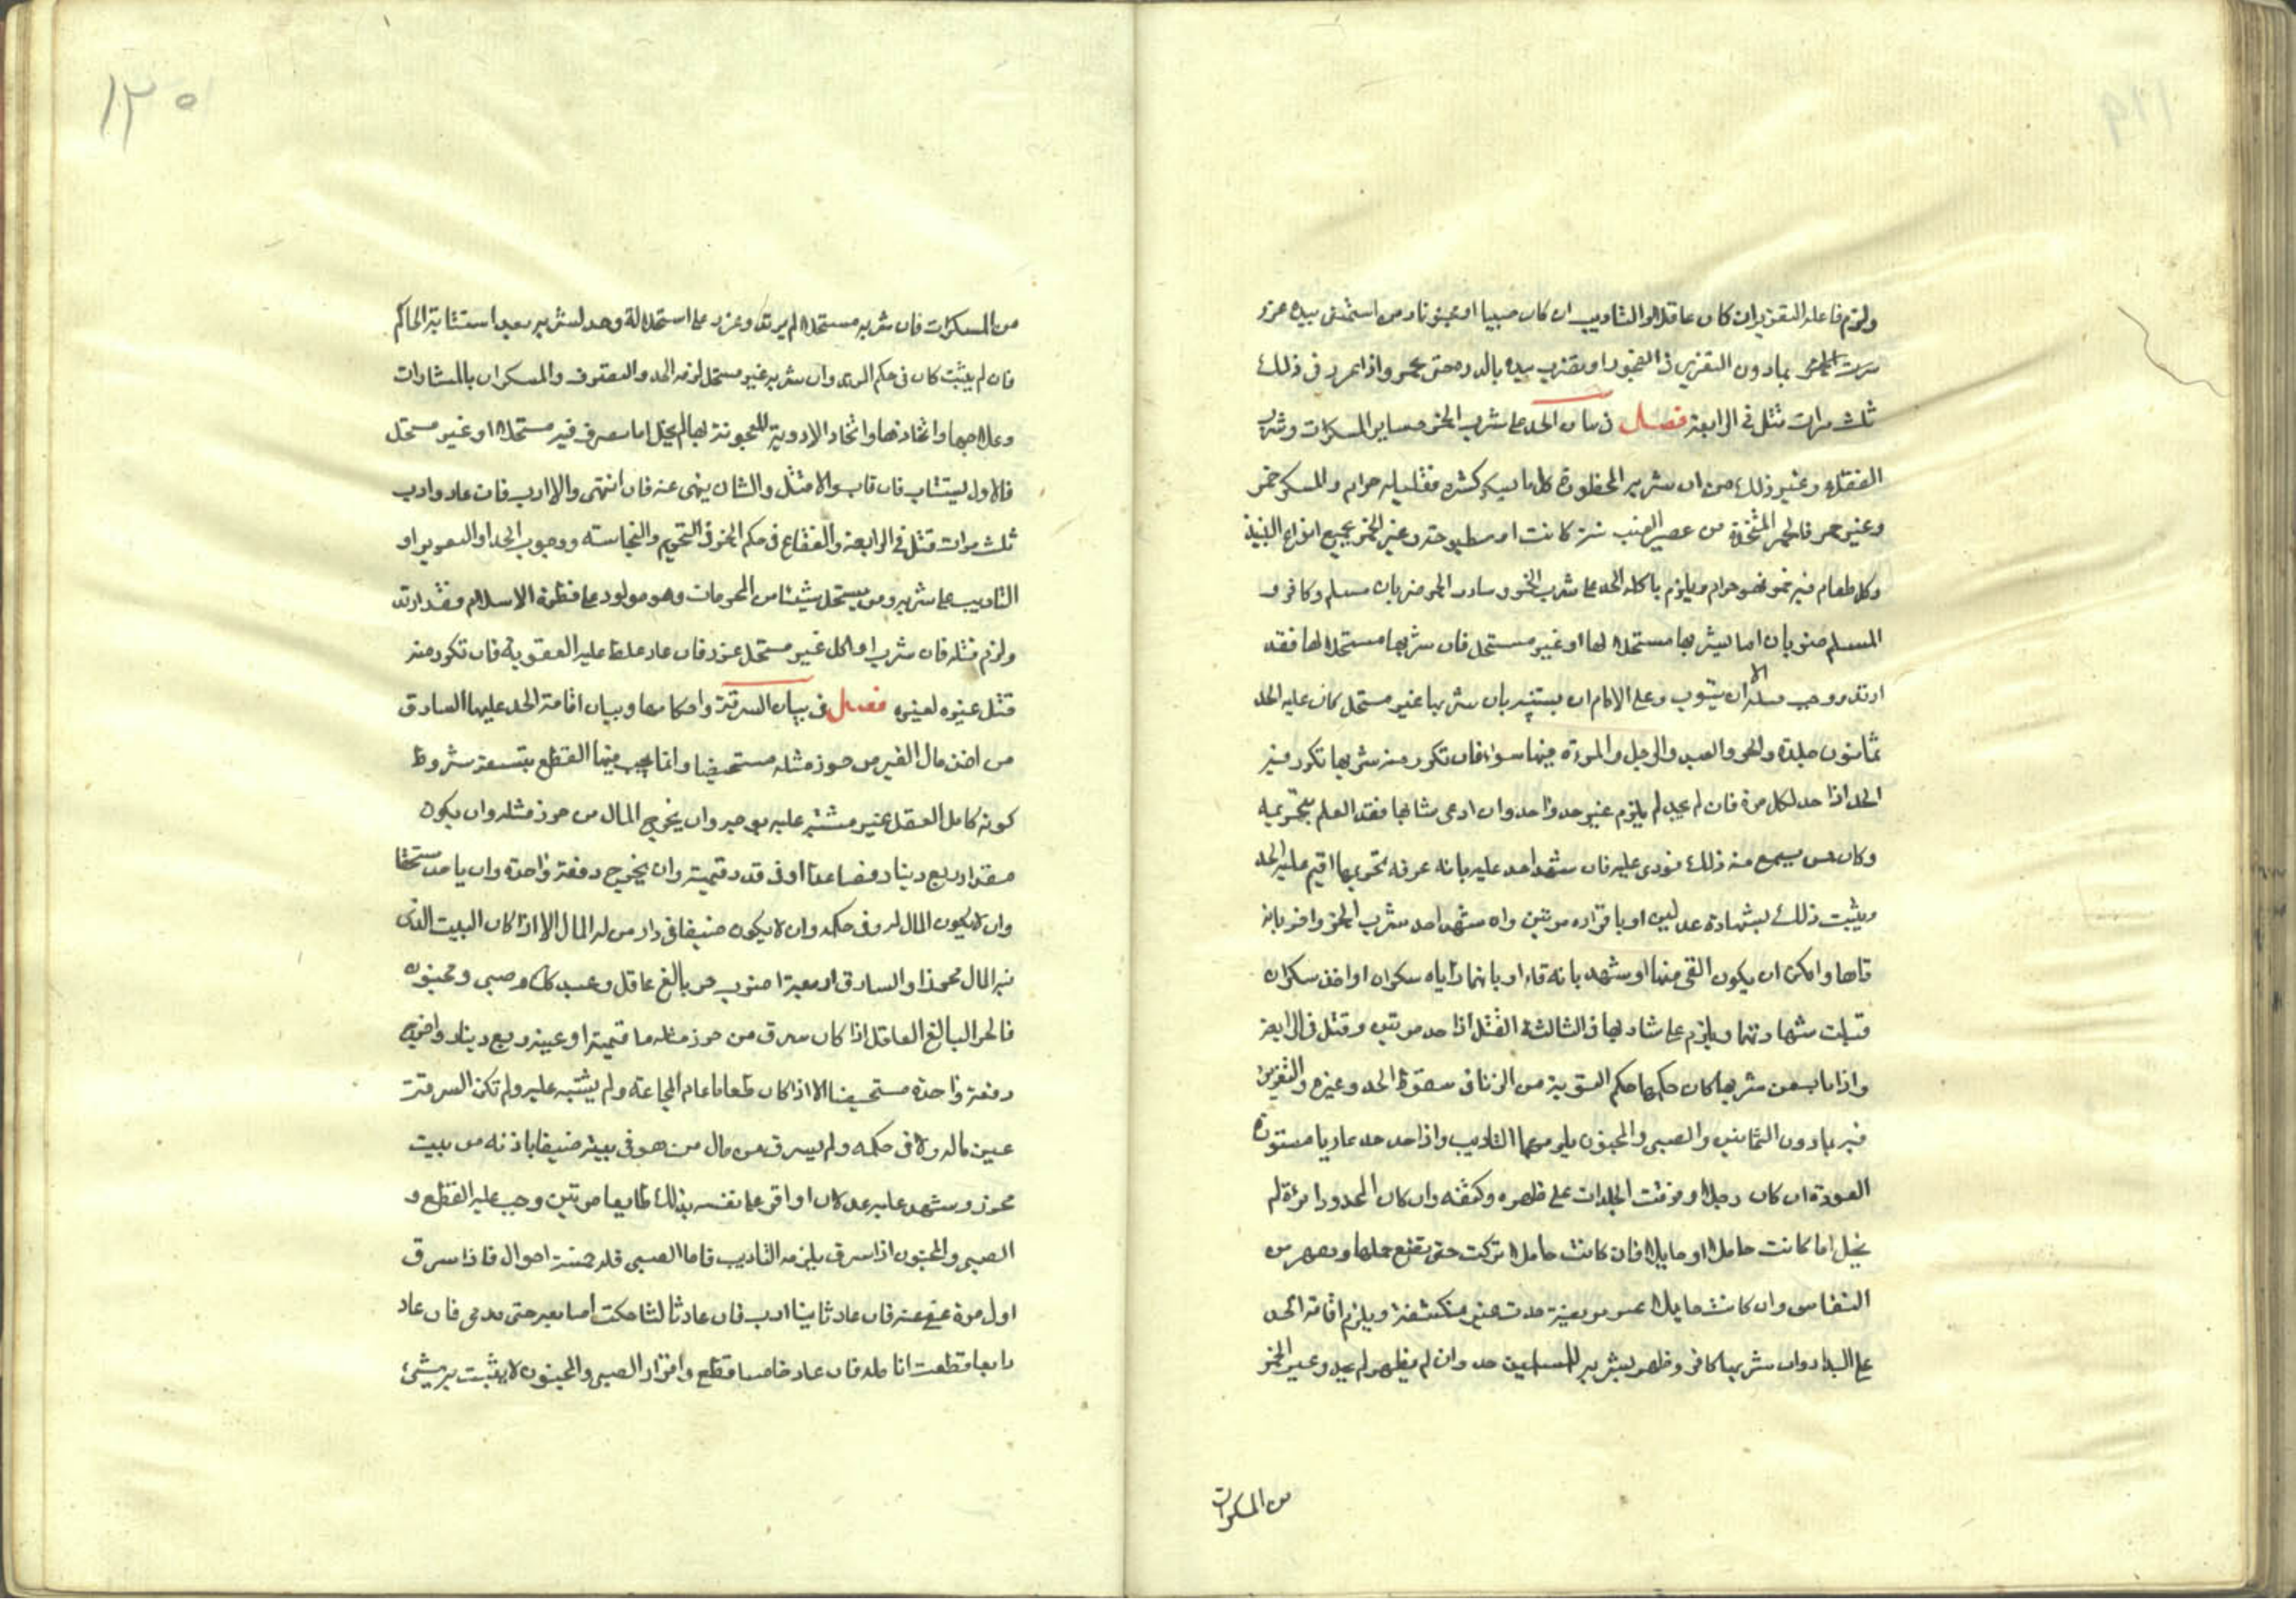 ولزم فاعله التعزير ان كان عاقلا والتاديب ان كان صبيا او مجنونا ومن استمنى بيده عزر
بمادون التعزير فى الفجور او بضرب يده بالدرة حتى تحمر واذا عزر فى ذلك
ثلث مرات قتل فى الرابعة فصل فى بيان الحد على شرب الخمر وساير المسكرات وشرب
الفقاع وغير ذلك من الاشربه المحظورة كل ما يسكر كثيره فقليله حرام والمسكر خمر
وغير خمر فالخمر المتخذة من عصير العنب نية كانت او مطبوخة وغير الخمر جميع انواع النبيذ
وكل طعام فيه خمر فهو حرام ويلزم باكله الحد على شرب الخمر وشارب الخمر ضربان مسلم وكافر و
المسلم ضربان اما يشربها مستحلا لها او غير مستحل فان شربها مستحلا لها فقد
ارتد ووجب قتله الا ان يتوب وعلى الامام ان يستتيبه فان شربها غير مستحل كان عليه الحد
ثمانون جلدة والحر والعبد والرجل والمرءة فيها سواء فان تكرر منه شربها تكرر فيه
الحد اذا حد لكل مرة فان لم يحد لم يلزم غير حد واحد وان ادعى شاربها فقد العلم بتحريمه
وكان ممن يسمع منه ذلك نودى عليه فان شهد احد عليه بانه عرفه تحريمها اقيم عليه الحد
ويثبت ذلك بشهادة عدلين او باقراره مرتين وان شهد احد بشرب الخمر واخر بانه
قاءها وامكن ان يكون القى منها او شهد بانه قاء او بانهما راياه سكران او اخذ سكران
قبلت شهادتهما ويلزم على شاربها فى الثالثة القتل اذا حد مرتين وقتل فى الرابعة
واذا تاب من شربها كان حكمها حكم التوبة من الزنا فى سقوط الحد وغيره والتعزير
فيه بمادون الثمانين والصبى والمجنون يلزمهما التاديب واذا حد حد عاريا مستور
العورة ان كان رجلا وفرقت الجلدات على ظهره وكتفه وان كان المحدود امرءة لم
يخل اما كانت حاملا او حايلا فان كانت حاملا تركت حتى تضع حملها وتطهر من
النفاس وان كانت حايلا غير مريضة حدت غير منكشفة ويلزم اقامة الحد
على البدار وان شربها كافر وظهر بشربه للمسلمين حد وان لم يظهر لم يحد وغير الخمر
من المسكرات
١٣٠
من المسكرات فان شربه مستحلا لم يرتد وعزر على استحلاله وحد لشربه بعد استتابة الحاكم
فان لم يتب كان فى حكم المرتد وان شربه غير مستحل لزمه الحد والتصرف والمسكران
وعلاجها واتخاذها واتخاذ الادوية المعجونة بها لم يخل اما يتصرف فيه مستحلا او غير مستحل
فالاول يستتاب فان تاب والا قتل والثانى ينهى عنه فان انتهى والا ادب فان عاد وادب
ثلث مرات قتل فى الرابعة والفقاع فى حكم الخمر فى التحريم والنجاسة ووجوب الحد او التعزير او
التاديب على شربه ومن يستحل شيئا من المحرمات وهو مولود على فطرة الاسلام فقد ارتد
ولزم قتله فان شرب او اكل غير مستحل عزر فان عاد غلظ عليه العقوبة فان تكرر منه
قتل عبرة لغيره فصل فى بيان السرقة واحكامها وبيان اقامة الحد عليها السارق
من اخذ مال الغير من حرز مثله مستخفيا وانما يجب فيها القطع بتسعة شروط
كونه كامل العقل غير مشتبه عليه وان يخرج المال من حرز مثله وان يكون
مقدار ربع دينار فصاعدا او فى قدر قيمته وان يخرج دفعة واحدة وان ياخذ مستخفيا
وان لا يكون المال له وفى حكمه وان لا يكون ضيفا فى دار من له المال الا اذا كان البيت الذى
فيه المال محرزا والسارق اربعة اضرب حر بالغ عاقل وعبد كامل وصبى ومجنون
فالحر البالغ العاقل اذا كان سرق من حرز مثله ما قيمته او عينه ربع دينار واخرج
دفعة واحدة مستخفيا الا اذا كان طعاما عام المجاعة ولم يشتبه عليه ولم تكن السرقة
عين ماله ولا فى حكمه ولم يسرق من مال من هو فى بيته ضيفا باذنه من بيت
محرز وشهد عليه عدلان او اقر على نفسه بذلك طايعا مرتين وجب عليه القطع و
الصبى والمجنون اذا سرق يلزمه التاديب فاما الصبى فله خمسة احوال فاذا سرق
اول مرة عفى عنه فان عاد ثانيا ادب فان عاد ثالثا حكت اصابعه حتى تدمى فان عاد
رابعا قطعت انامله فان عاد خامسا قطع واقرار الصبى والمجنون لا يثبت به شئ